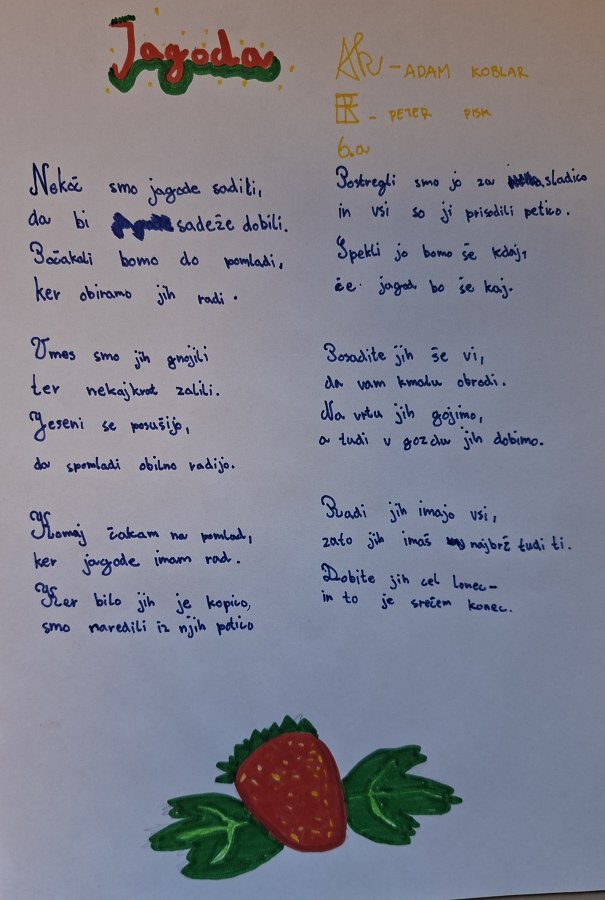 Jagoda
AK - ADAM KOBLAR
PK - PETER PISK
6.a
Nekoč smo jagode saditi,
da bi sadeže dobili.
Počakali bomo do pomladi,
ker obiramo jih radi.
Vmes smo jih gnojili
ter nekajkrat zalili.
Jeseni se posušijo,
da spomladi obilno rodijo.
Komaj čakam na pomlad,
ker jagode imam rad.
Ker bilo jih je kopico,
smo naredili iz njih potico
Postregli smo jo za sladico
in vsi so ji prisodili petico.
Spekli jo bomo še kdaj,
če jagod bo še kaj.
Posadite jih še vi,
da vam kmalu obrodi.
Na vrtu jih gojimo,
a tudi v gozdu jih dobimo.
Radi jih imajo vsi,
zato jih imaš najbrž tudi ti.
Dobite jih cel lonec-
in to je srečen konec.